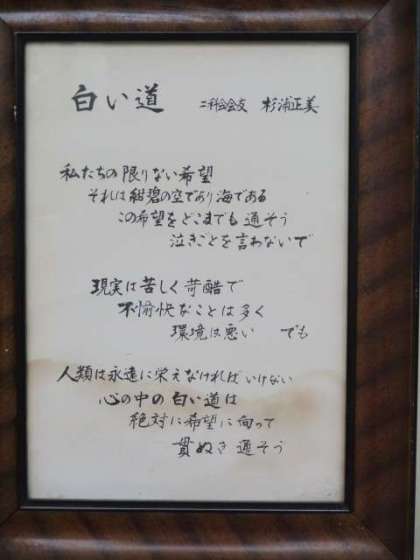 白い道
二科会会友 杉浦正美
私たちの限りない希望
それは紺碧の空であり海である
この希望をどこまでも通そう
泣きごとを言わないで
現実は苦しく苛酷で
不愉快なことは多く
環境は悪い でも
人類は永遠に栄えなければいけない
心の中の白い道は
絶対に希望に向って
貫ぬき通そう